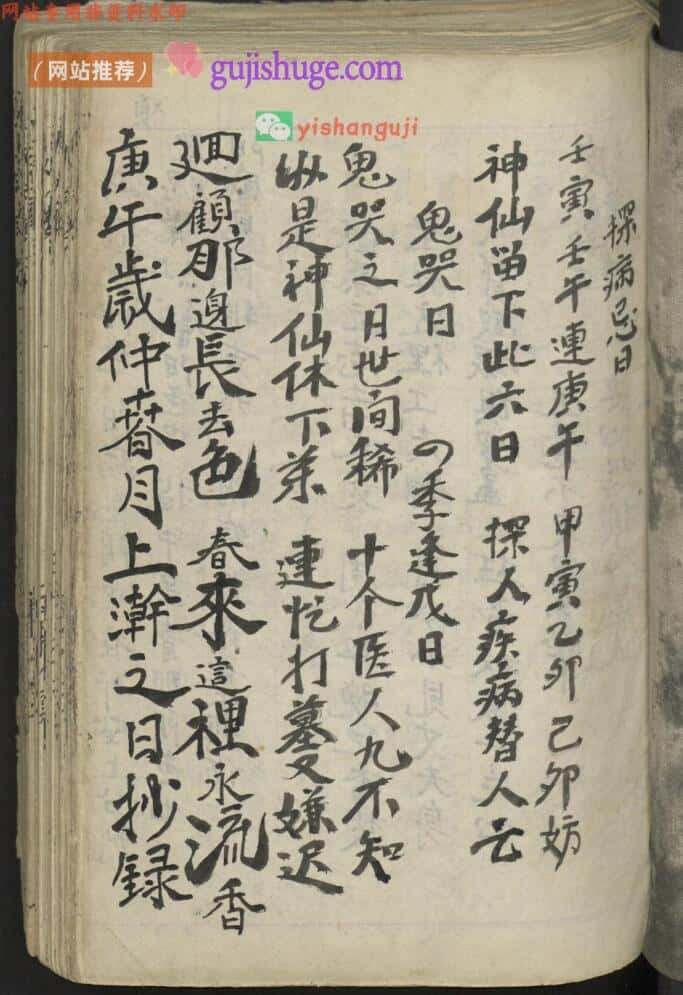 网站专用非资料水印
（网站推荐）
gujishuge.com
yishanguji
探病忌日
壬寅壬午連庚午 甲寅乙卯己卯妨
神仙留下此六日 探人疾病替人亡
鬼哭日 四季逢戊日
鬼哭之日世间稀 十个医人九不知
纵是神仙休下药 連忙打墓又嫌迟
廻顧那邊長去色 春來這裡永流香
庚午歲仲春月上澣之日抄録